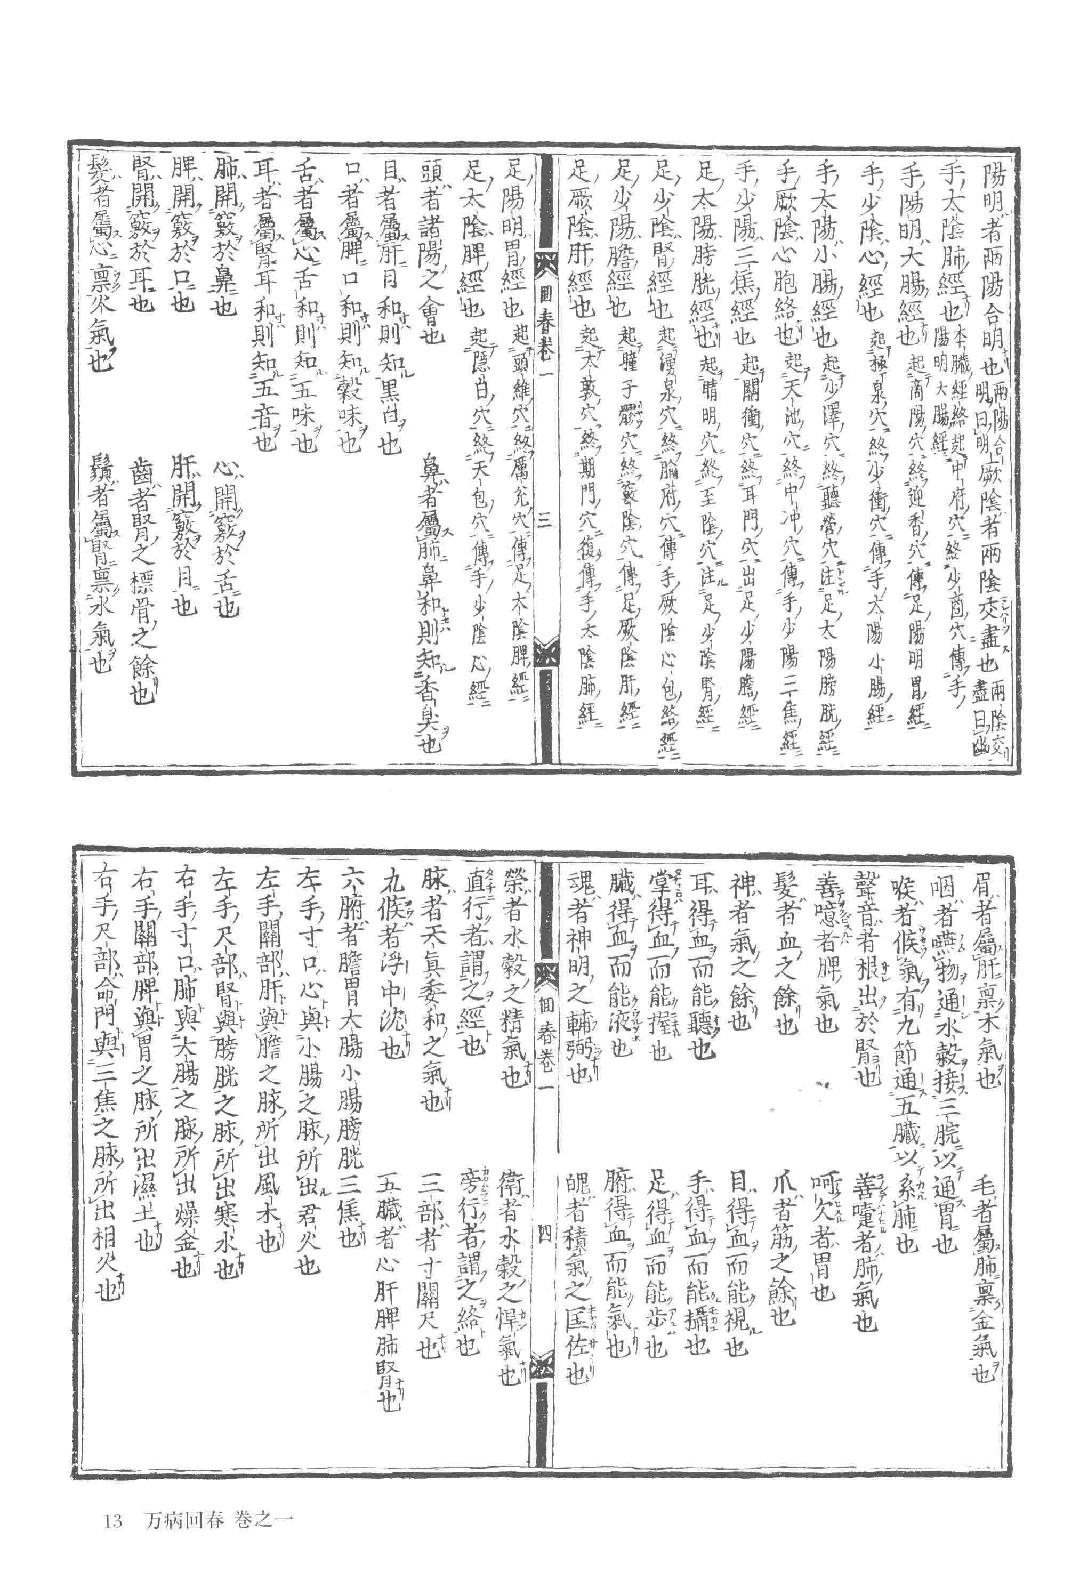 陽明者兩陽合明也兩陽合明曰明厥陰者兩陰交盡也兩陰交盡曰幽
手太陰肺經也本臟經絡起中府穴終少商穴傳手陽明大腸經
手陽明大腸經也起商陽穴終迎香穴傳足陽明胃經
手少陰心經也起極泉穴終少衝穴傳手太陽小腸經
手太陽小腸經也起少澤穴終聽營穴注足太陽膀胱經
手厥陰心胞絡也起天池穴終中冲穴傳手少陽三焦經
手少陽三焦經也起關衝穴終耳門穴出足少陽膽經
足太陽膀胱經也起睛明穴終至陰穴注足少陰腎經
足少陰腎經也起湧泉穴終腧府穴傳手厥陰心包絡經
足少陽膽經也起瞳子髎穴終竅陰穴傳足厥陰肝經
足厥陰肝經也起太敦穴終期門穴復傳手太陰肺經
回春卷一
三
足陽明胃經也起頭維穴終厲兌穴傳足太陰脾經
足太陰脾經也起隱白穴終天包穴傳手少陰心經
頭者諸陽之會也 鼻者屬肺鼻和則知香臭也
目者屬肝目和則知黑白也
口者屬脾口和則知穀味也
舌者屬心舌和則知五味也
耳者屬腎耳和則知五音也
肺開竅於鼻也 心開竅於舌也
脾開竅於口也 肝開竅於目也
腎開竅於耳也 齒者腎之標骨之餘也
髮者屬心禀火氣也 鬚者屬腎禀水氣也
眉者屬肝禀木氣也 毛者屬肺禀金氣也
咽者嚥物通水穀接三脘以通胃也
喉者候氣有九節通五臟以系肺也
聲音者根出於腎也 善嚏者肺氣也
善噫者脾氣也 呵欠者胃也
髮者血之餘也 爪者筋之餘也
神者氣之餘也 目得血而能視也
耳得血而能聽也 手得血而能攝也
掌得血而能握也 足得血而能步也
臟得血而能液也 腑得血而能氣也
魂者神明之輔弼也 魄者積氣之匡佐也
回春卷一
四
榮者水穀之精氣也 衛者水穀之悍氣也
直行者謂之經也 旁行者謂之絡也
脉者天真委和之氣也 三部者寸關尺也
九候者浮中沈也 五臟者心肝脾肺腎也
六腑者膽胃大腸小腸膀胱三焦也
左手寸口心與小腸之脉所出君火也
左手關部肝與膽之脉所出風木也
左手尺部腎與膀胱之脉所出寒水也
右手寸口肺與大腸之脉所出燥金也
右手關部脾與胃之脉所出濕土也
右手尺部命門與三焦之脉所出相火也
13 万病回春 巻之一